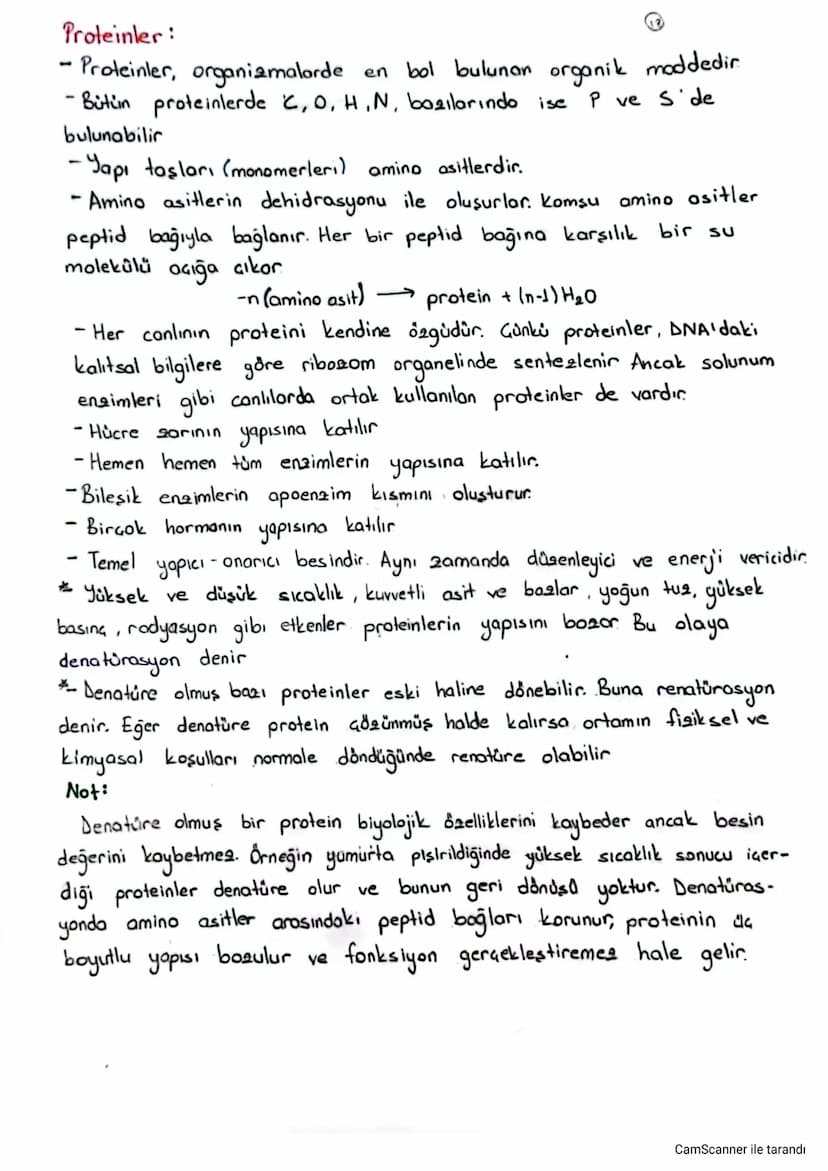 13
Proteinler:
- Proteinler, organizmalarde en bol bulunan organik maddedir
- Bütün proteinlerde C, O, H, N, bazılarında ise P ve S'de
bulunabilir
- Yapı taşları (monomerleri) amino asitlerdir.
- Amino asitlerin dehidrasyonu ile oluşurlar. Komsu amino asitler
peptid bağıyla bağlanır. Her bir peptid bağına karşılık bir su
molekülü açığa çıkar
-n(amino asit) → protein + (n-1)H₂O
- Her canlının proteini kendine özgüdür. Çünkü proteinler, DNA'daki
kalıtsal bilgilere göre ribozom organelinde sentezlenir Ancak solunum
enzimleri gibi canlılarda ortak kullanılan proteinler de vardır.
- Hücre zarının yapısına katılır
- Hemen hemen tüm enzimlerin yapısına katılır.
- Bileşik enzimlerin apoenzim kısmını oluşturur.
- Birçok hormanın yapısına katılır
- Temel yapıcı-onarıcı besindir. Aynı zamanda düzenleyici ve enerji vericidir.
* Yüksek ve düşük sıcaklık, kuvvetli asit ve bazlar, yoğun tuz, yüksek
basınç, radyasyon gibi etkenler proteinlerin yapısını bozar Bu olaya
denatürasyon denir
*- Denatüre olmuş bazı proteinler eski haline dönebilir. Buna renatürasyon
denir. Eğer denatüre protein çözünmüş halde kalırsa ortamın fiziksel ve
kimyasal koşulları normale döndüğünde renatüre olabilir
Not:
Denatüre olmuş bir protein biyolojik özelliklerini kaybeder ancak besin
değerini kaybetmez. Örneğin yumurta pişirildiğinde yüksek sıcaklık sonucu içer-
diği proteinler denatüre olur ve bunun geri dönüşü yoktur. Denatüras-
yonda amino asitler arasındaki peptid bağları korunur, proteinin üç
boyutlu yapısı bozulur ve fonksiyon gerçekleştiremez hale gelir.
CamScanner ile tarandı